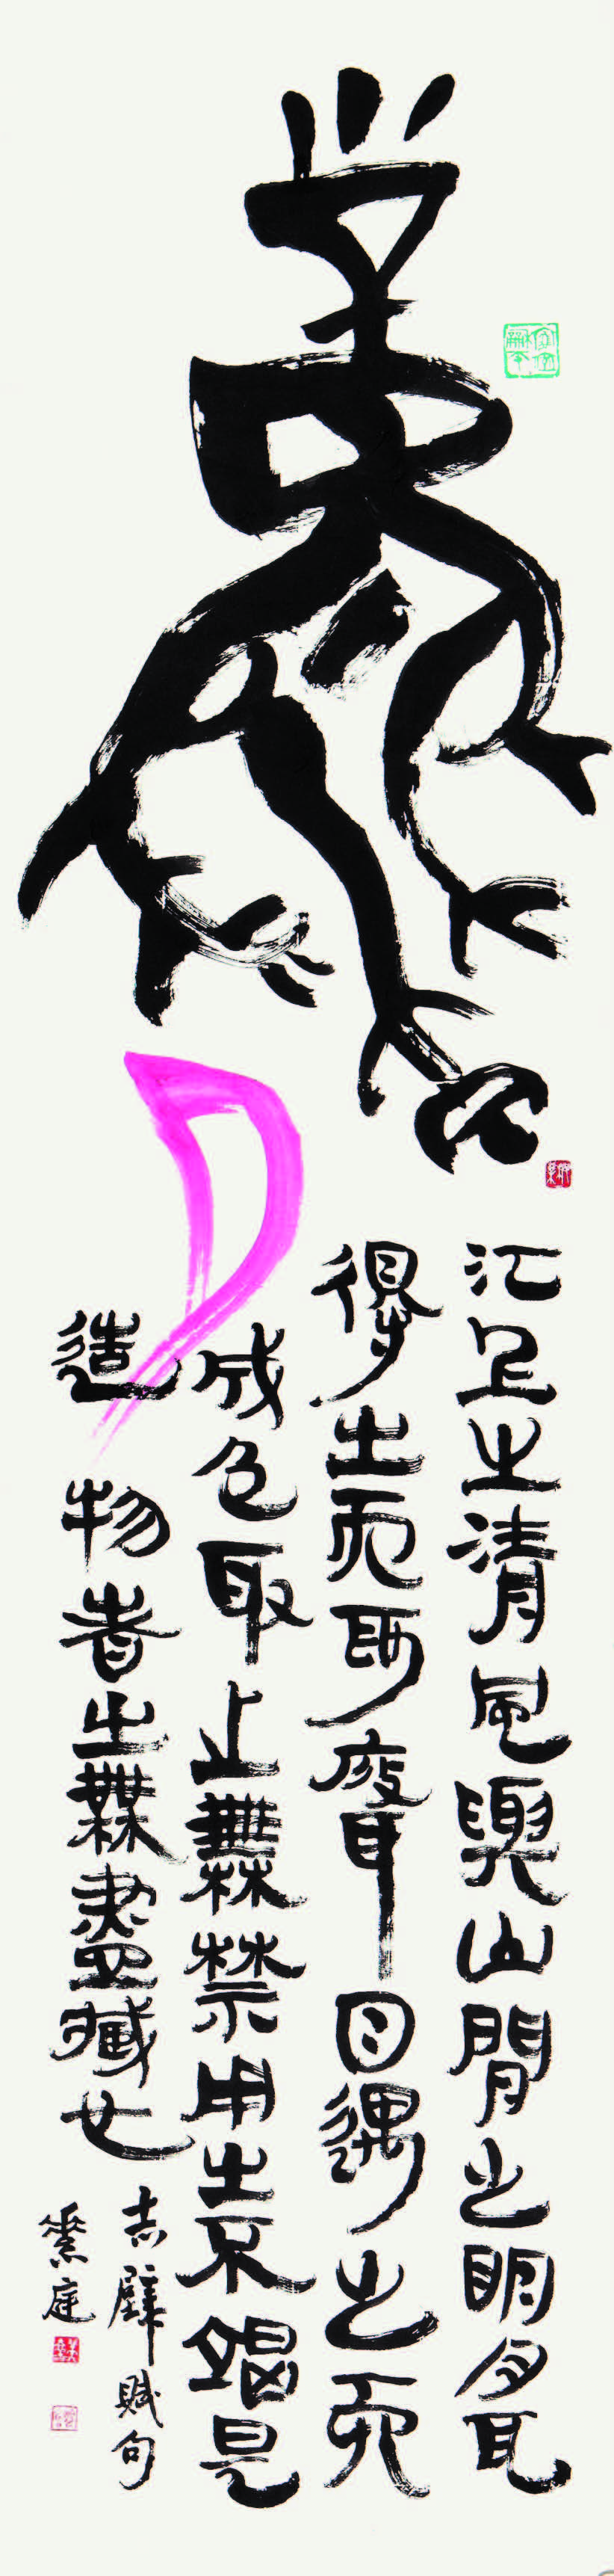 江上之清風與山間之明月耳
得之而爲聲目遇之而
成色取之無禁用之不竭是
造物者之無盡藏也
赤壁賦句
庭